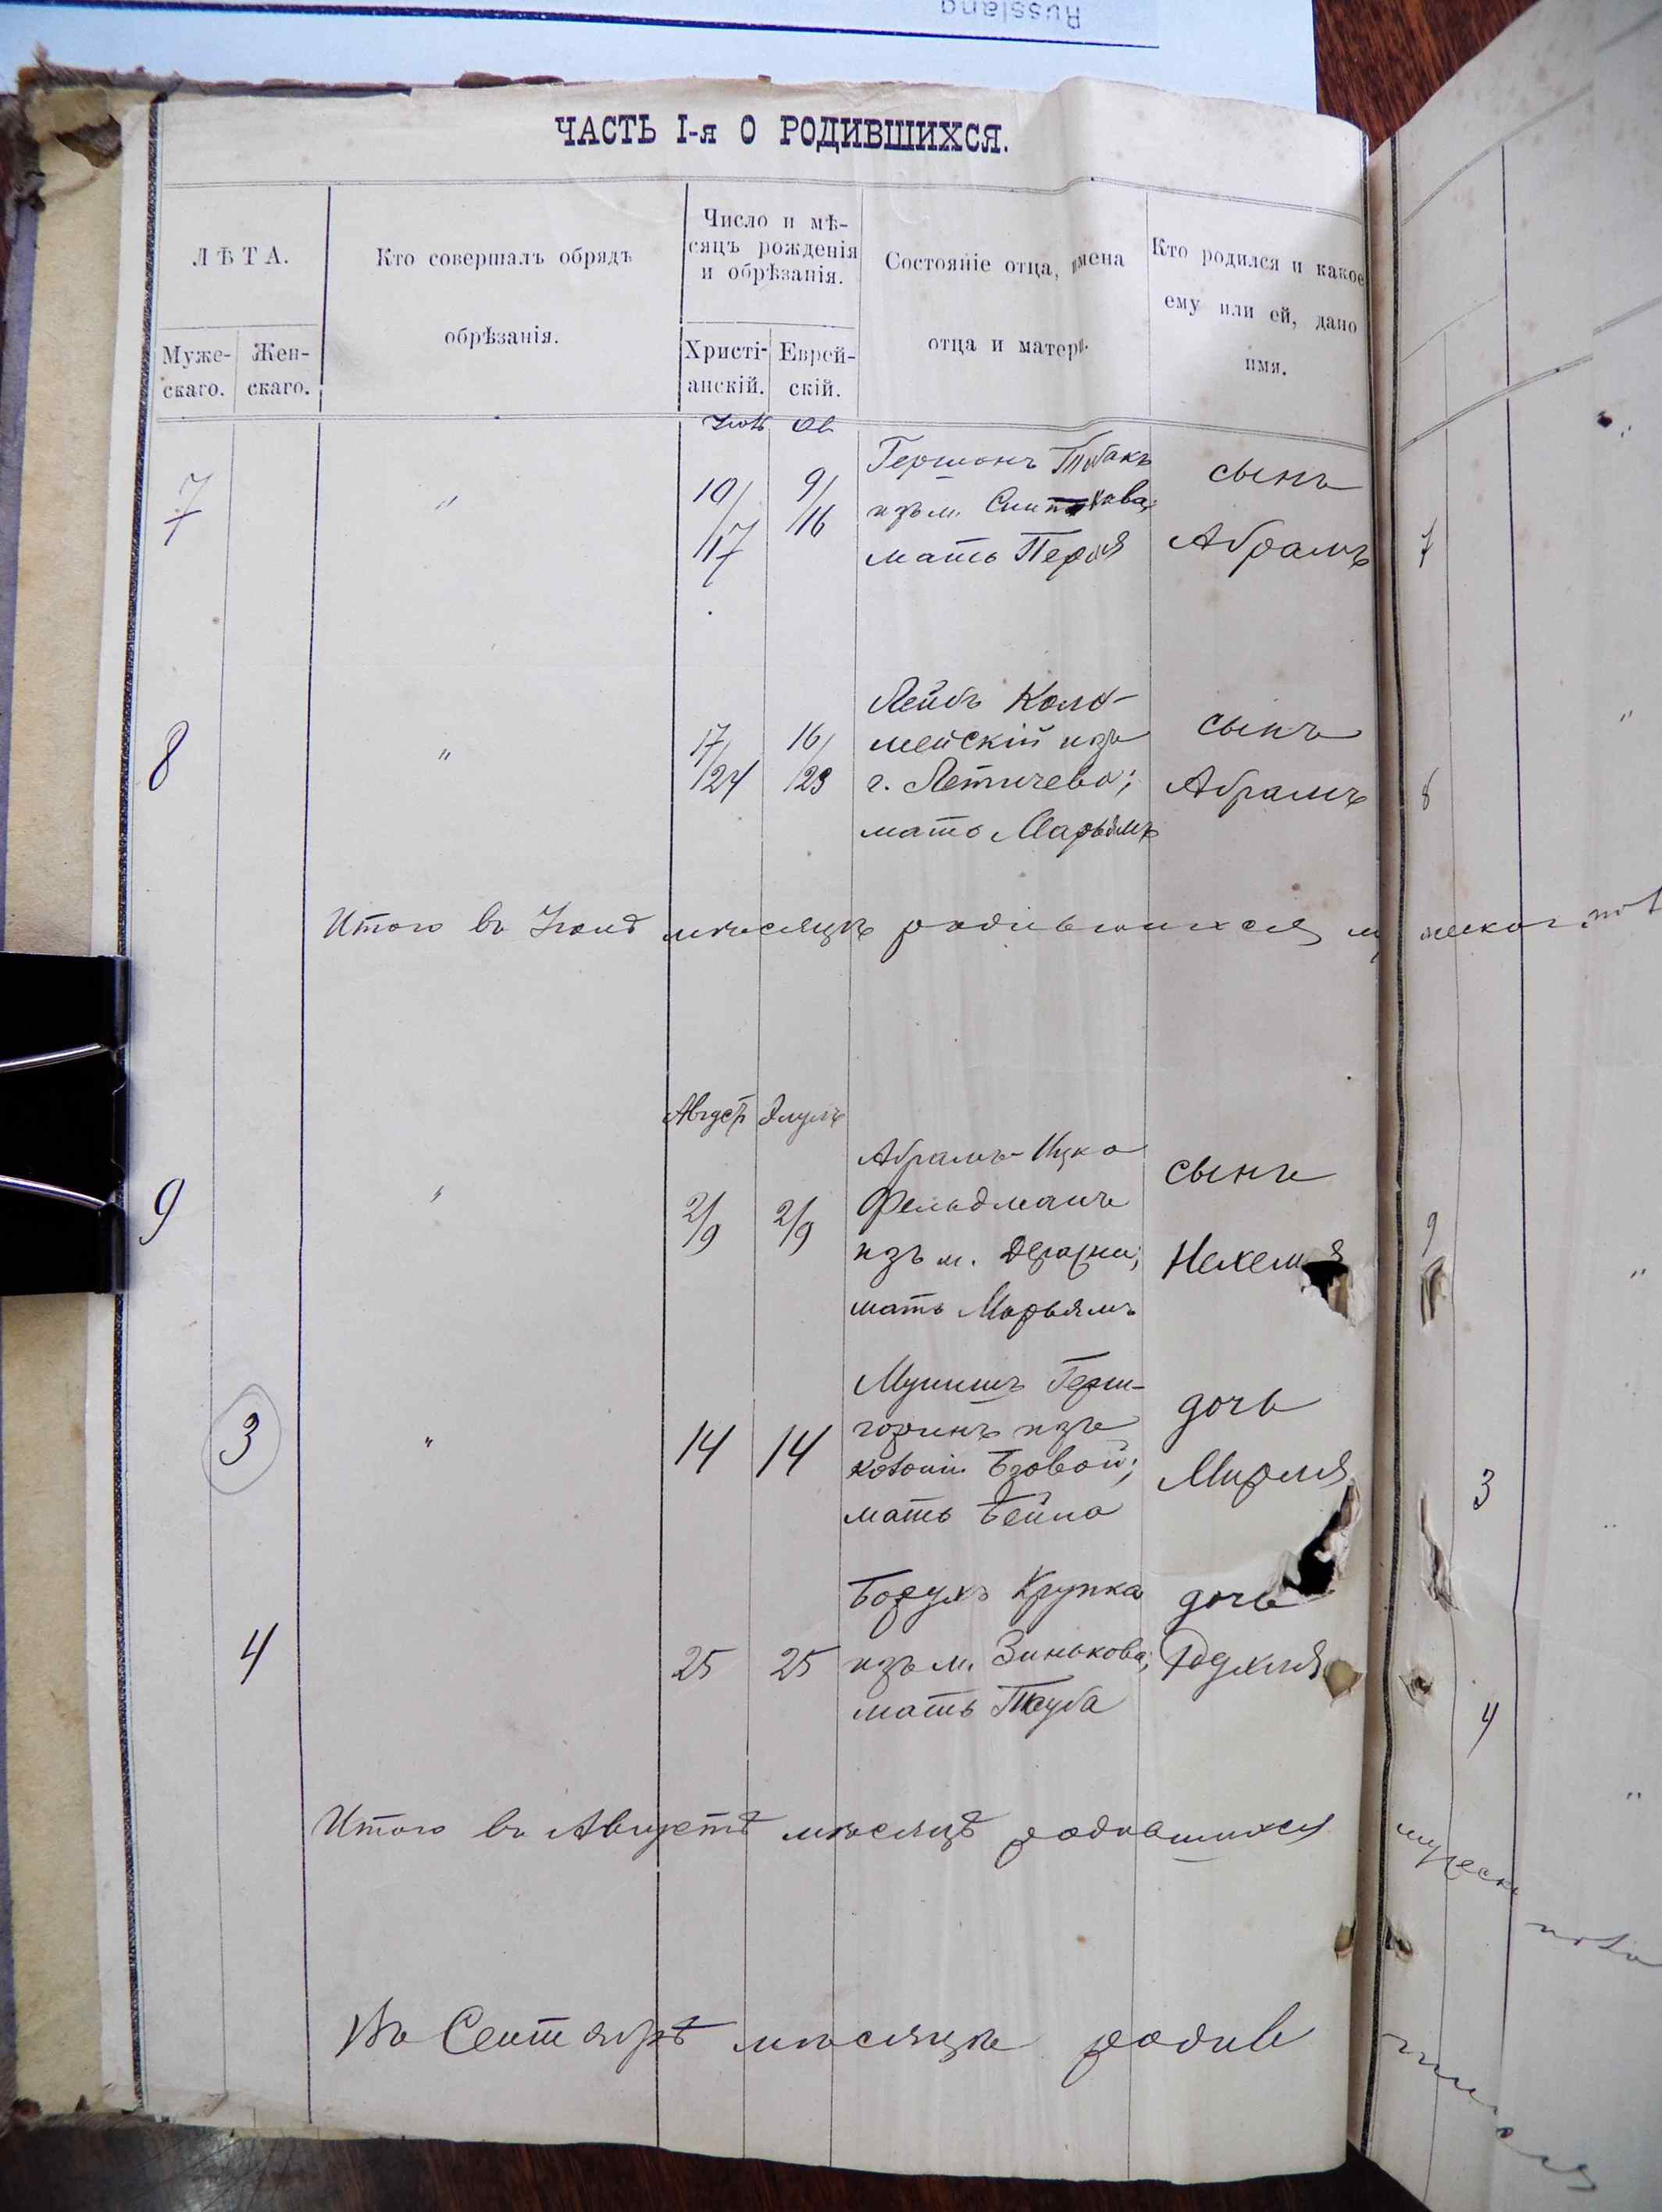 Russland
ЧАСТЬ I-я О РОДИВШИХСЯ.
ЛѢТА.
Муже-
скаго.
Жен-
скаго.
Кто совершалъ обрядъ
обрѣзанія.
Число и мѣ-
сяцъ рожденія
и обрѣзанія.
Христі-
анскій.
Еврей-
скій.
Состояніе отца, имена
отца и матери.
Кто родился и какое
ему или ей, дано
имя.
Ав
7
"
10/17
9/16
Гершонъ
изъ м.
мать Перля
сынъ
Абрамъ
7
8
"
17/24
16/23
Лейбъ Коло-
мейскій изъ
г. Летичева;
мать Марьямъ
сынъ
Абрамъ
8
Итого въ мѣсяцѣ родившихся
Августъ Элулъ
9
"
2/9
2/9
Абрамъ-Ицко
Фельдманъ
изъ м. Деражни;
мать Марьямъ
сынъ
9
3
"
14
14
Герш-
горинъ изъ
колоніи
мать Бейла
дочь
Мирля
3
4
25
25
Борухъ Крупка
изъ м. Зинькова;
мать Тауба
дочь
Рухля
4
Итого въ Августѣ мѣсяцѣ родившихся
Въ Сентябрѣ мѣсяцѣ родив